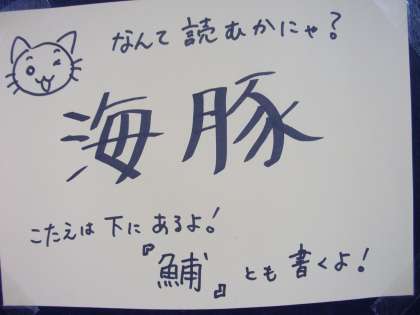 なんて読むかにゃ?
海豚
こたえは下にあるよ!
『鯆』とも書くよ!